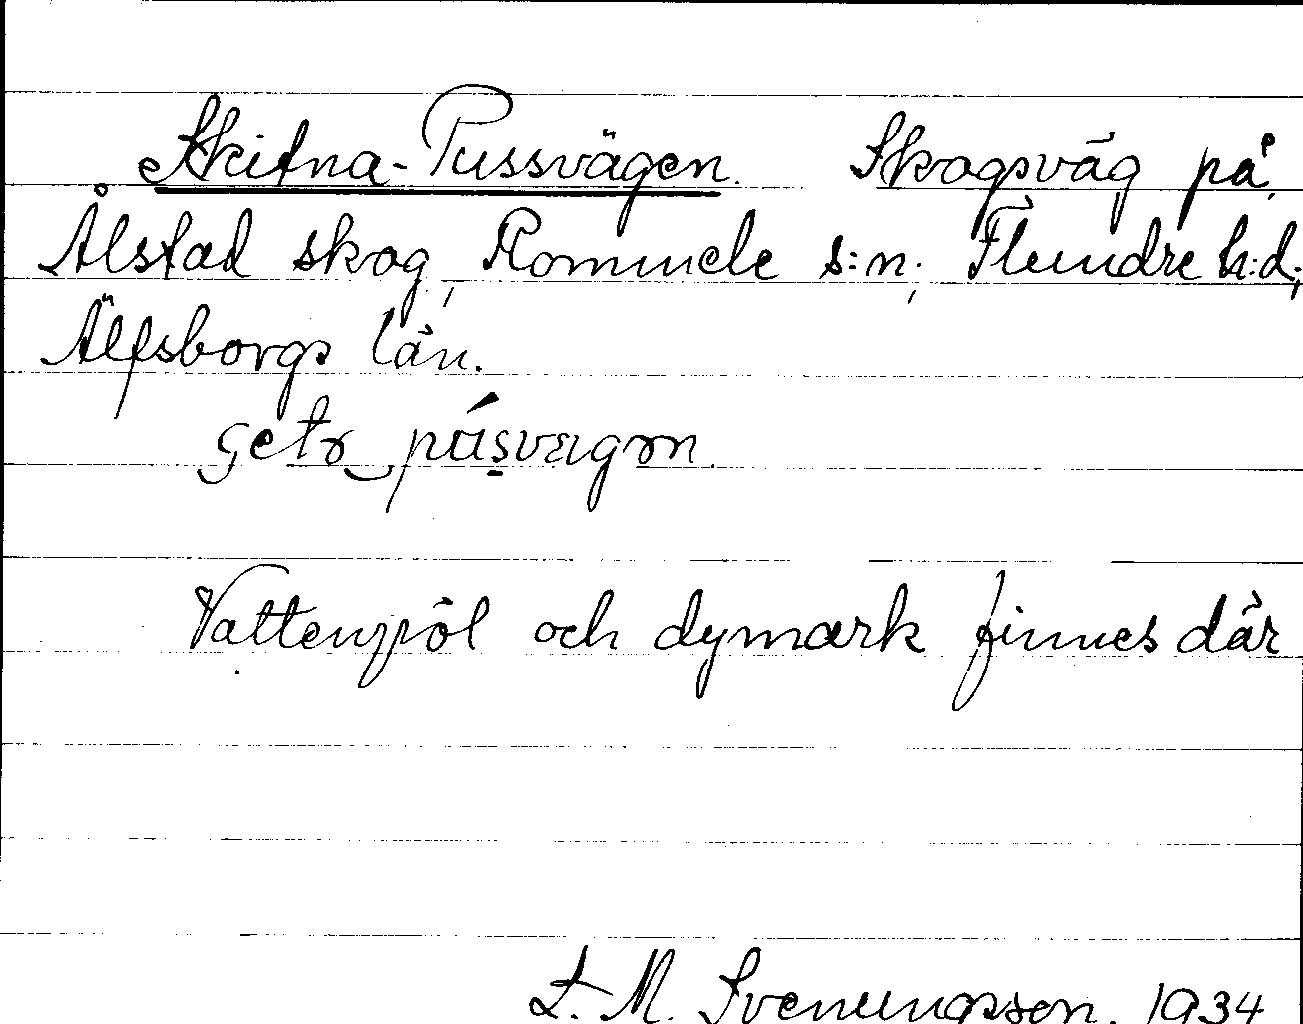 Skitna-Pussvägen. Skogsväg på
Ålstad skog, Rommele s:n, Flundre h:d,
Älfsborgs län.
Vattenpöl och dymark finnes där
L. M. Svenungsson. 1934